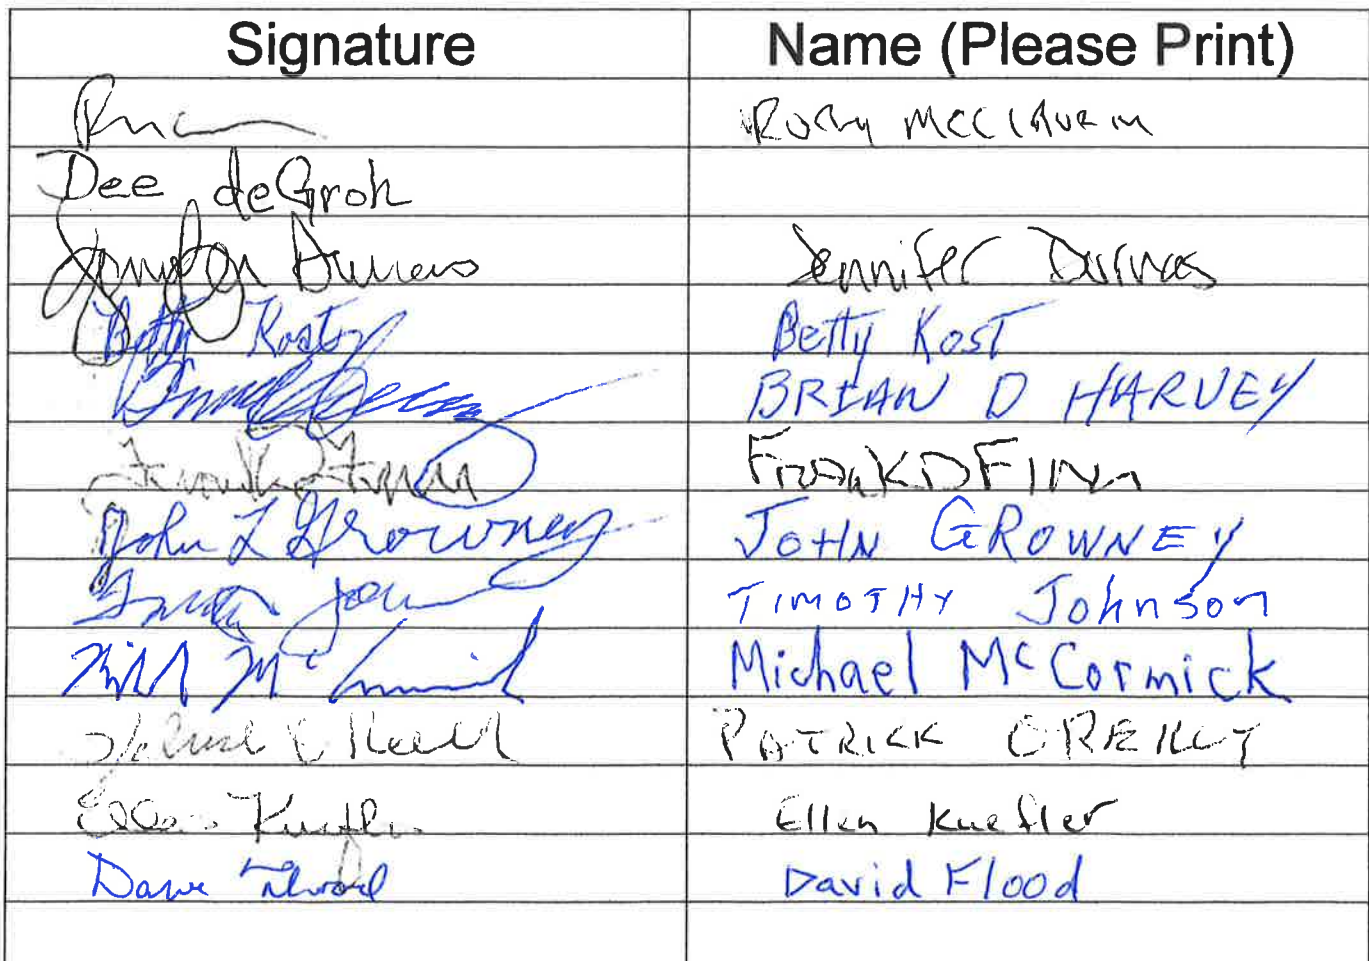 Signature Name (Please Print)
Rory McClaurin
Dee deGroh
Jennifer Jennifer
Betty Kost Betty Kost
BRIAN D HARVEY
Frank D FINA
John L Growney JOHN GROWNEY
TIMOTHY Johnson
Mc Michael McCormick
PATRICK OREILLY
Ellen Kuefler Ellen Kuefler
Dave Flood David Flood